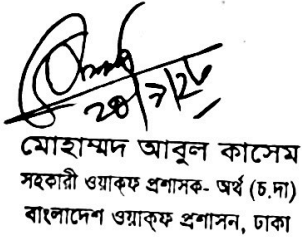 মোহাম্মদ আবুল কাসেম
সহকারী ওয়াক্ফ প্রশাসক- অর্থ (চ.দা)
বাংলাদেশ ওয়াক্ফ প্রশাসন, ঢাকা